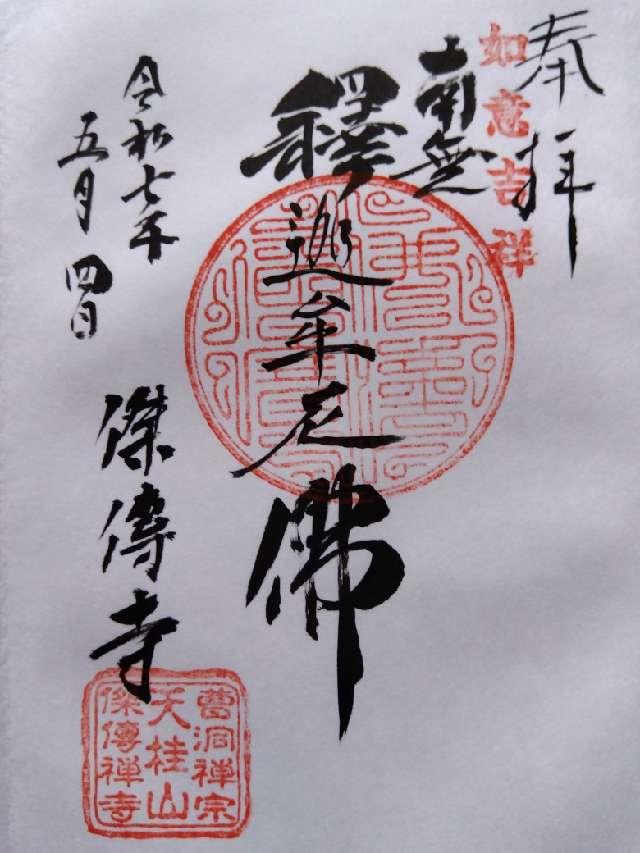 奉拝
如意吉祥
南無
釋迦牟尼佛
令和七年
五月四日
傑傳寺
曹洞禅宗
天桂山
傑傳禅寺